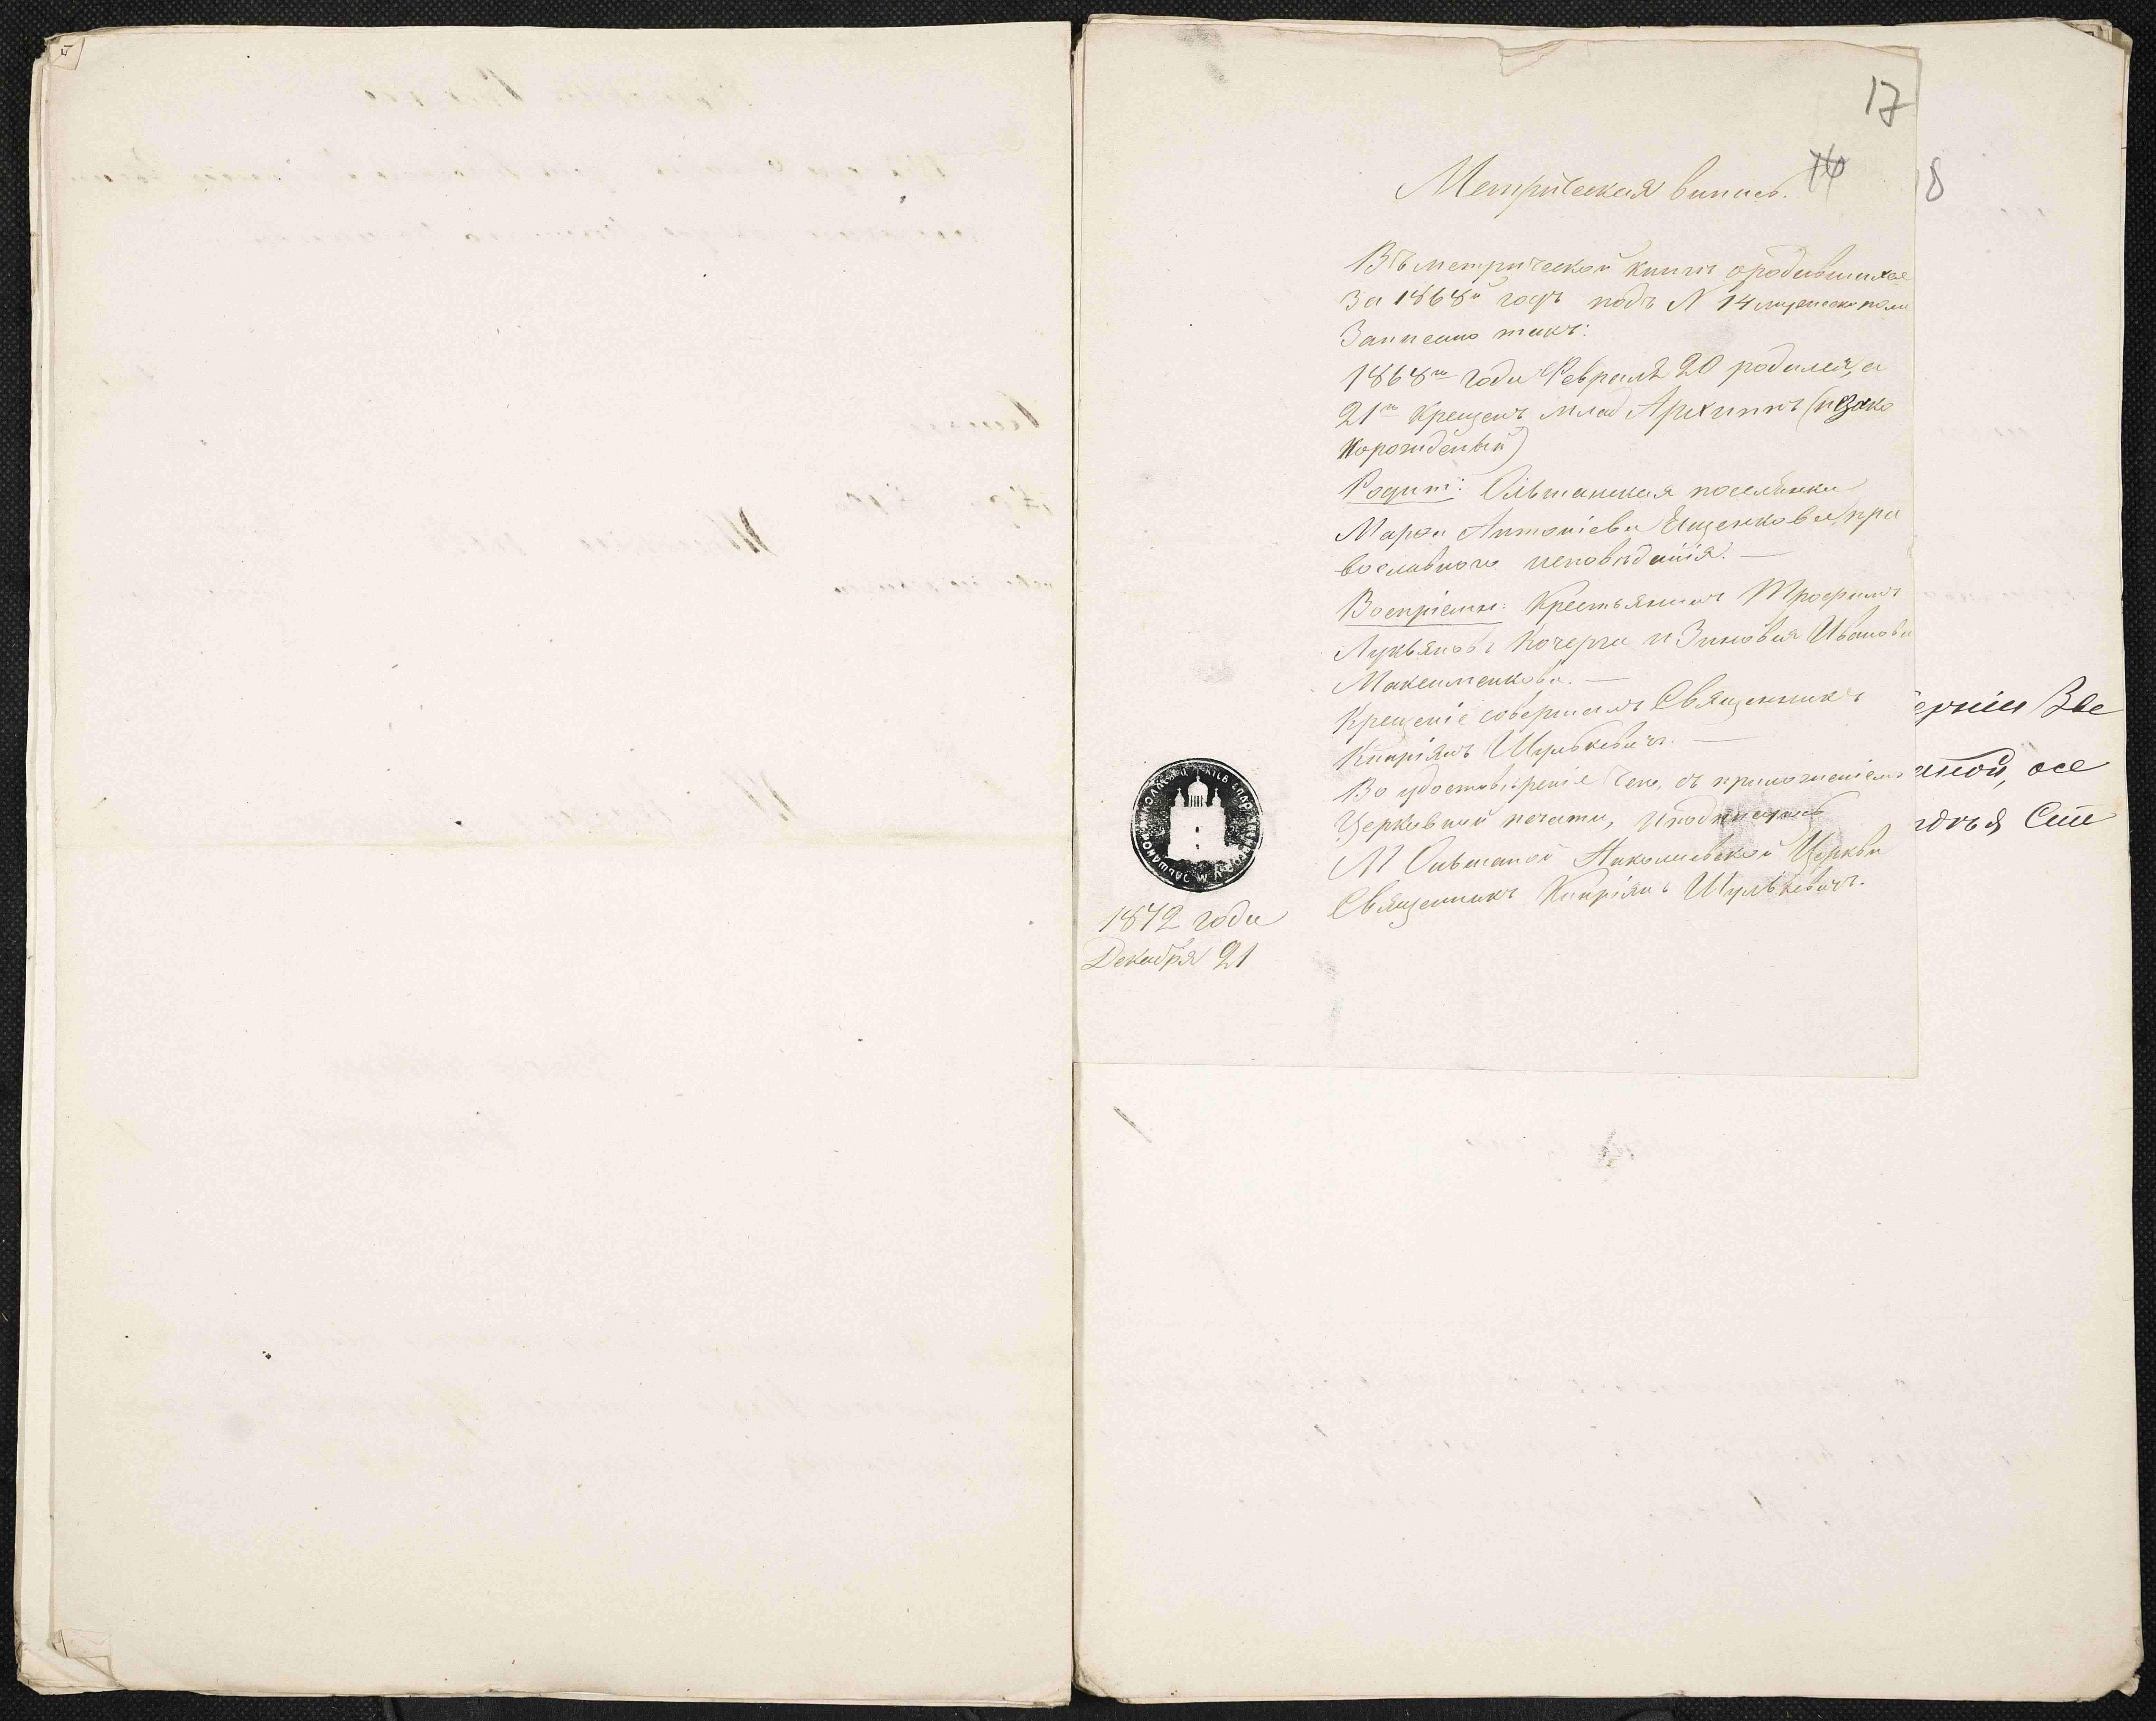 17
16
Метрическая випись.
Въ метрической книгѣ о родившихся
За 1868й годъ подъ N 14 мужеска пола
Записано такъ:
1868го года Февраля 20 родился, а
21го Крещенъ млад Архиппъ (незако
норожденый)
Родит: Ольшанская поселянка
Марѳа Антоніева Ященкова, пра
вославного исповѣданія. —
Воспріемн: Крестьянинъ Трофимъ
Лукьяновъ Кочерга и Зиновия Иванова
Максименкова. —
Крещеніе совершилъ Священникъ
Кипріянъ Шулькевичъ. —
Во удостовѣреніе чего, съ приложеніемъ
Церковной печати, и подписуюсь
М Ольшаной Николаевской Церкви
Священникъ Кипріянъ Шулькевичъ.
1872 года
Декабря 21
18
ерніи Зве
аной, осе